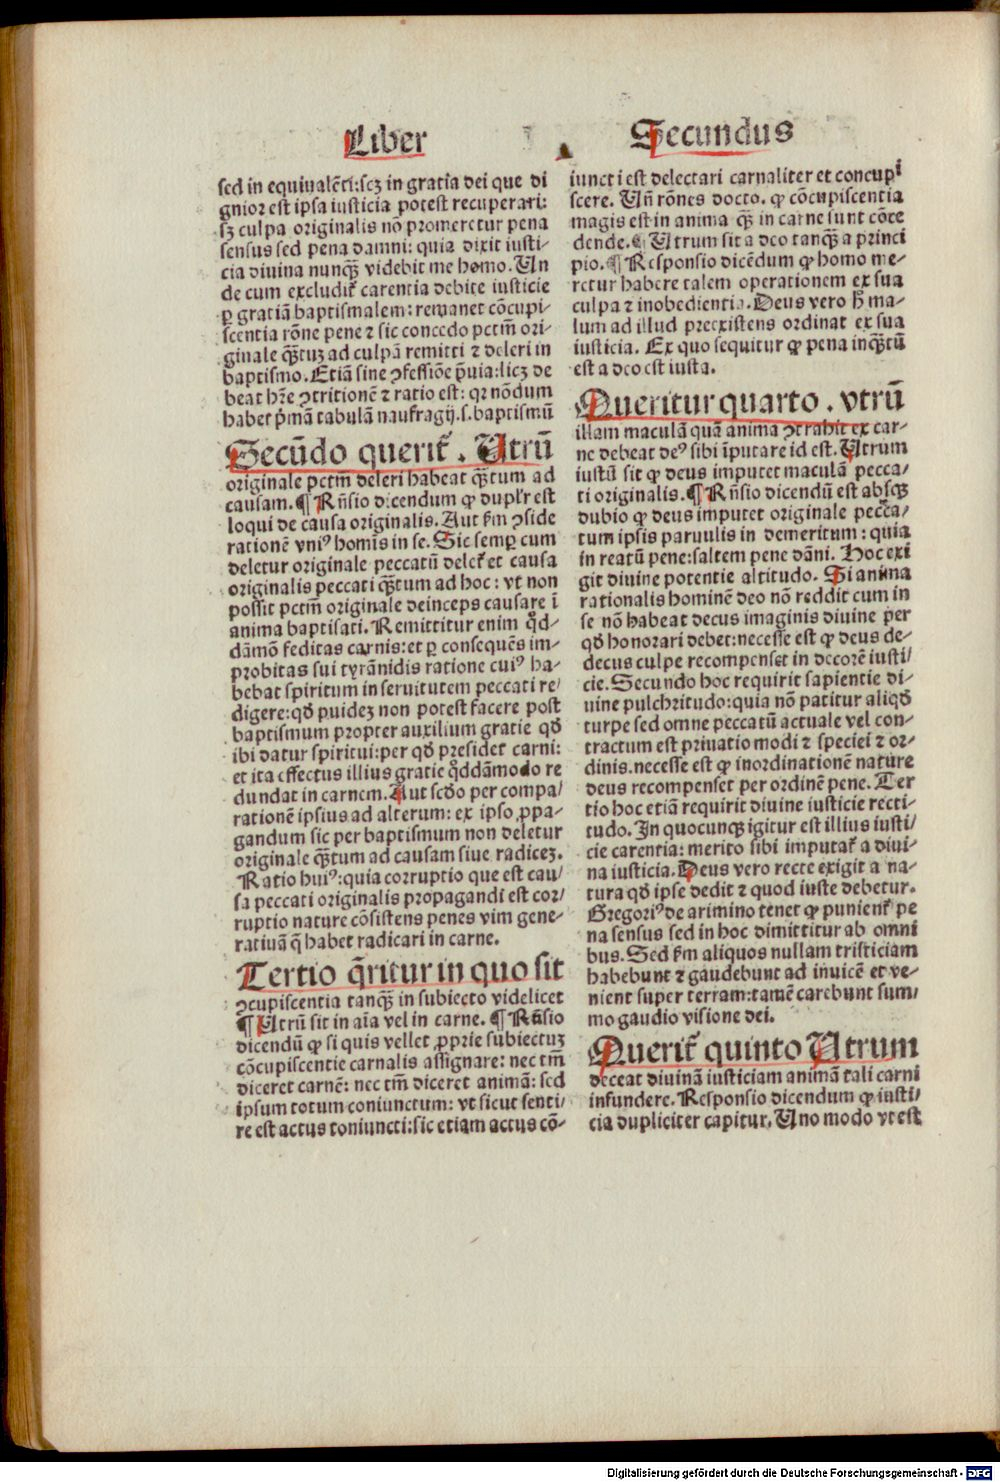 Liber
Secundus
sed in equiualēti:scꝫ in gratia dei que di
gnior est ipsa iusticia potest recuperari:
sꝫ culpa originalis nō promeretur pena
sensus sed pena damni: quia dixit iusti-
cia diuina nunqꝫ videbit me homo. Un
de cum excludit̄ carentia debite iusticie
ꝑ gratiā baptismalem: remanet cōcupi-
scentia rōne pene ⁊ sic concedo pctm̄ ori-
ginale qꝫtuꝫ ad culpā remitti ⁊ deleri in
baptismo. Etiā sine ↄfessiōe p̄uia: licꝫ de
beat hr̄e ↄtritionē ⁊ ratio est: qꝛ nōdum
habet pͥmā tabulā naufragij.s.baptismū
Secūdo querit̄. Utrū
originale pctm̄ deleri habeat qꝫtum ad
causam. ¶ Rn̄sio dicendum ꝙ dupl'r est
loqui de causa originalis. Aut ẜm ↄside
rationē vniꝰ homīs in se. Sic semꝑ cum
deletur originale peccatū delet̄ et causa
originalis peccati qꝫtum ad hoc: vt non
possit pctm̄ originale deinceps causare ī
anima baptisati. Remittitur enim qd̄-
dāmō feditas carnis: et ꝑ consequēs im-
probitas sui tyrānidis ratione cuiꝰ ha-
bebat spiritum in seruitutem peccati re/
digere: qd̄ puideꝫ non potest facere post
baptismum propter auxilium gratie qd̄
ibi datur spiritui: per qd̄ presidet carni:
et ita effectus illius gratie qd̄dāmodo re
dundat in carnem. Aut scd̄o per compa/
rationē ipsius ad alterum: ex ipso ꝓpa-
gandum sic per baptismum non deletur
originale qꝫtum ad causam siue radiceꝫ.
Ratio huiꝰ: quia corruptio que est cau/
sa peccati originalis propagandi est cor/
ruptio nature cōsistens penes vim gene-
ratiuā q̄ habet radicari in carne.
Tertio q̄ritur in quo sit
ↄcupiscentia tanqꝫ in subiecto videlicet
¶ Utrū sit in aīa vel in carne. ¶ Rn̄sio
dicendū ꝙ si quis vellet ꝓprie subiectuꝫ
cōcupiscentie carnalis assignare: nec tm̄
diceret carnē: nec tm̄ diceret animā: sed
ipsum totum coniunctum: vt sicut senti/
re est actus coniuncti: sic etiam actus cō-
iuncti est delectari carnaliter et concupi
scere. Un̄ rōnes docto. ꝙ cōcupiscentia
magis est in anima qꝫ in carne sunt cōce
dende. ¶ Utrum sit a deo tanqꝫ a princi
pio. ¶ Responsio dicēdum ꝙ homo me-
retur habere talem operationem ex sua
culpa ⁊ inobedientia. Deus vero h̄ ma-
lum ad illud preexistens ordinat ex sua
iusticia. Ex quo sequitur ꝙ pena inqꝫtū
est a deo est iusta.
Queritur quarto. vtrū
illam maculā quā anima ↄtrahit ex car-
ne debeat deꝰ sibi īputare id est. Utrum
iustū sit ꝙ deus imputet maculā pecca/
ti originalis. ¶ Rn̄sio dicendū est absqꝫ
dubio ꝙ deus imputet originale pecca/
tum ipsis paruulis in demeritum: quia
in reatū pene: saltem pene dāni. Hoc exi
git diuine potentie altitudo. Si anima
rationalis hominē deo nō reddit cum in
se nō habeat decus imaginis diuine per
qd̄ honorari debet: necesse est ꝙ deus de-
decus culpe recompenset in decorē iusti/
cie. Secundo hoc requirit sapientie di-
uine pulchritudo: quia nō patitur aliqd̄
turpe sed omne peccatū actuale vel con-
tractum est priuatio modi ⁊ speciei ⁊ or-
dinis. necesse est ꝙ inordinationē nature
deus recompenset per ordinē pene. Ter
tio hoc etiā requirit diuine iusticie recti-
tudo. In quocunqꝫ igitur est illius iusti/
cie carentia: merito sibi imputat̄ a diui-
na iusticia. Deus vero recte exigit a na-
tura qd̄ ipse dedit ⁊ quod iuste debetur.
Gregoriꝰ de arimino tenet ꝙ punient̄ pe
na sensus sed in hoc dimittitur ab omni
bus. Sed ẜm aliquos nullam tristiciam
habebunt ⁊ gaudebunt ad inuicē et ve-
nient super terram: tamē carebunt sum/
mo gaudio visione dei.
Querit̄ quinto Utrum
deceat diuinā iusticiam animā tali carni
infundere. Responsio dicendum ꝙ iusti/
cia dupliciter capitur. Uno modo vt est
Digitalisierung gefördert durch die Deutsche Forschungsgemeinschaft - DFG